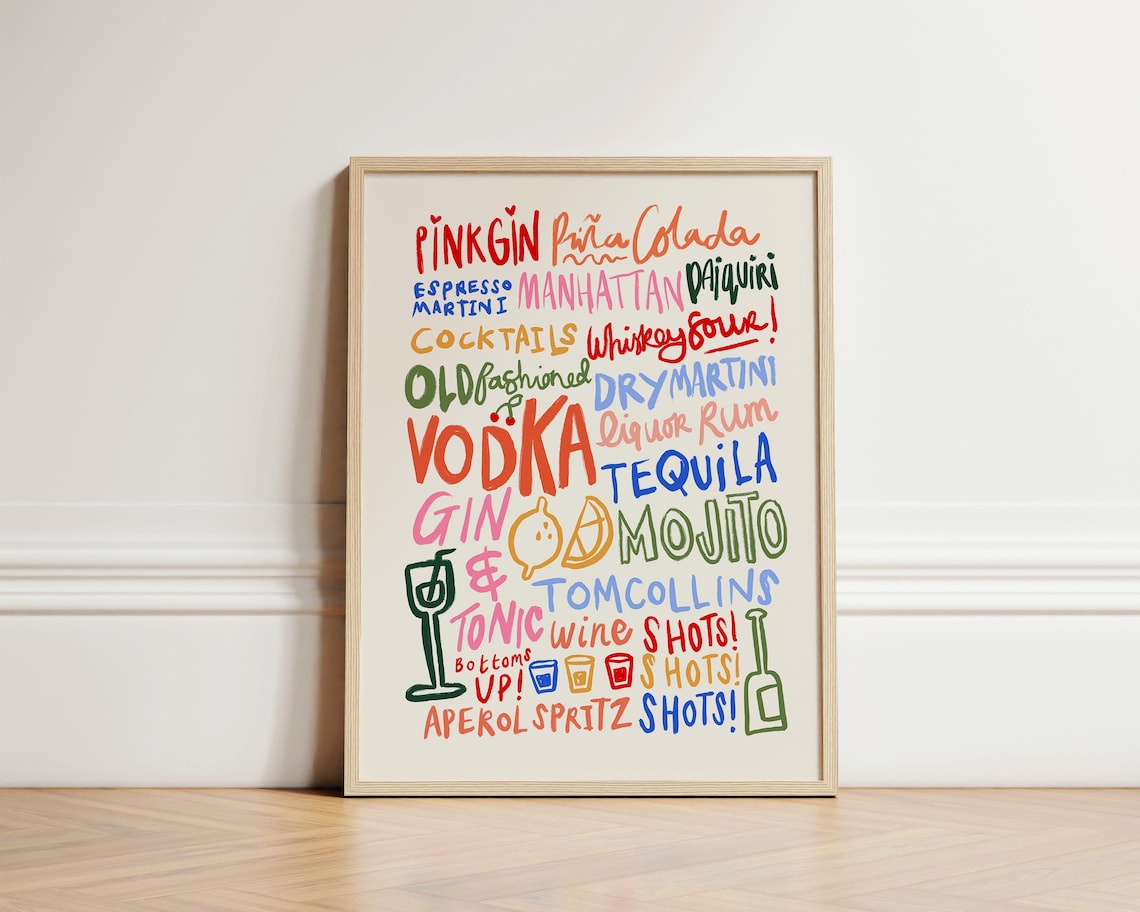 PINK GIN Piña Colada
ESPRESSO MARTINI MANHATTAN DAIQUIRI
COCKTAILS Whiskey Sour!
OLD fashioned DRY MARTINI
VODKA liquor Rum
TEQUILA
GIN & TONIC MOJITO
TOM COLLINS
wine SHOTS!
Bottoms UP! SHOTS!
APEROL SPRITZ SHOTS!